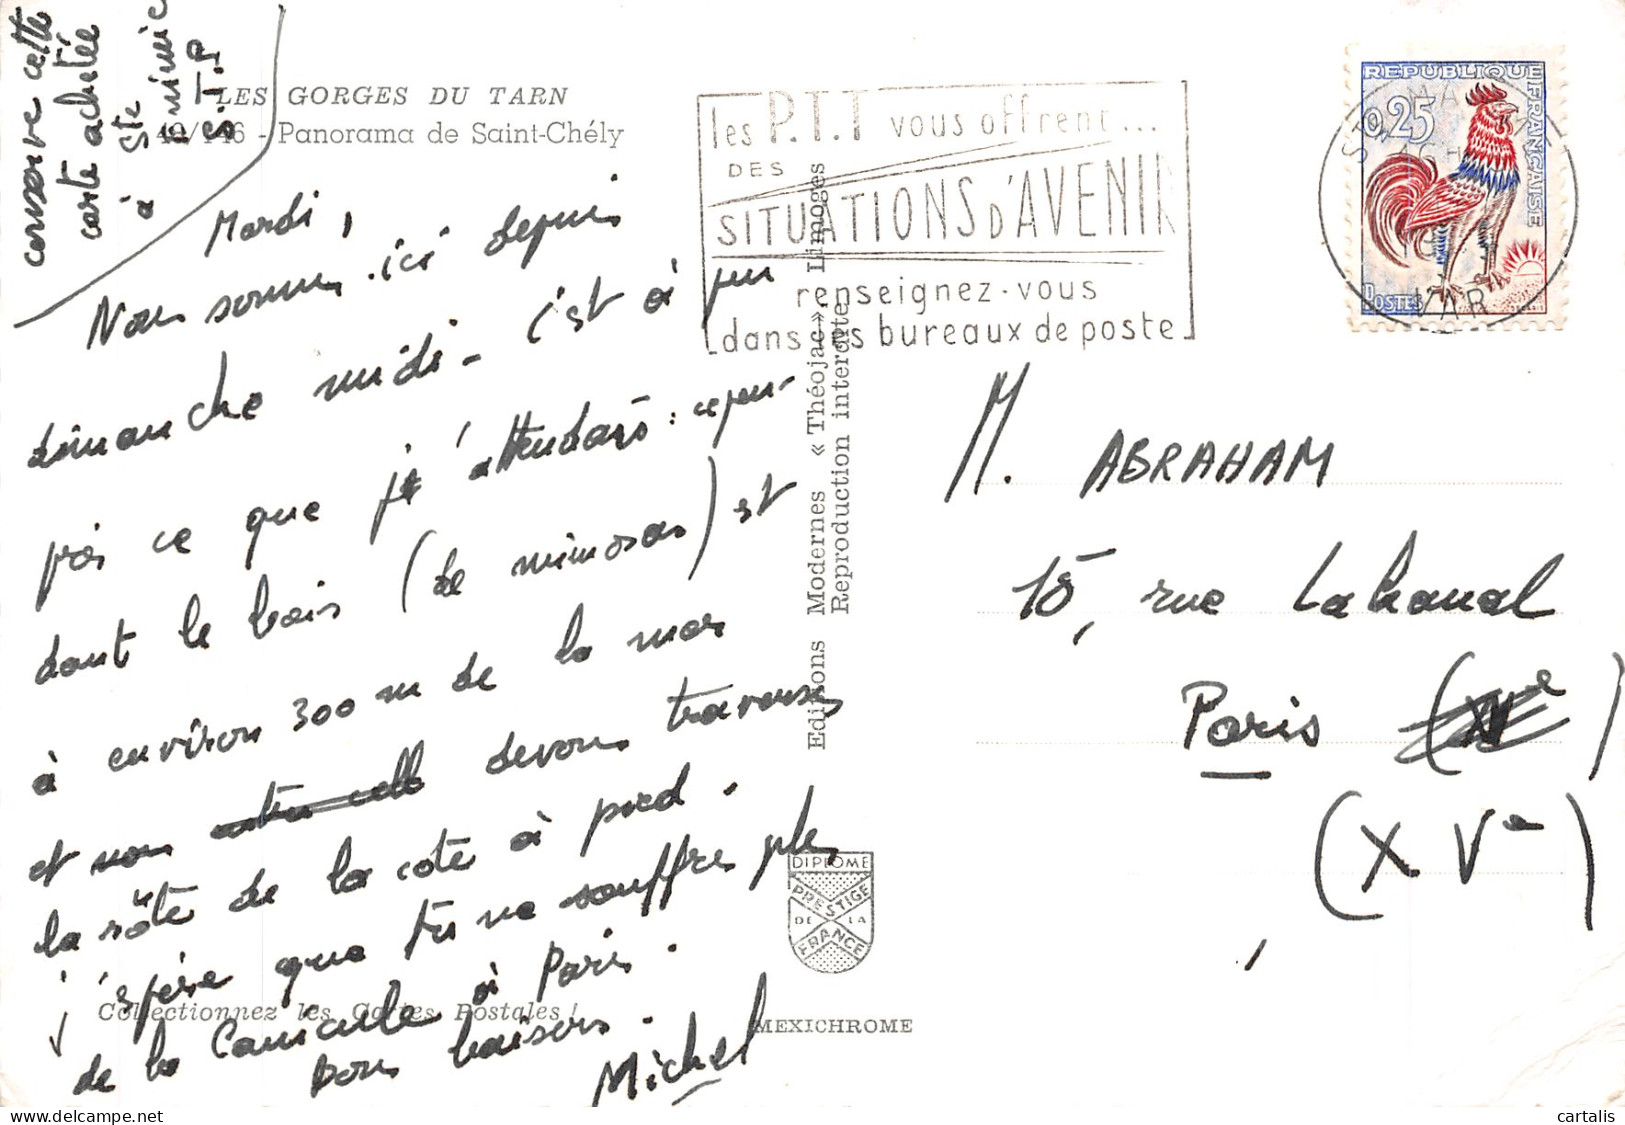 conserve cette
carte achetée
à Ste
Enimie
S.T.P
LES GORGES DU TARN
146 - Panorama de Saint-Chély
Mardi,
Nous sommes ici depuis
dimanche midi - c'est à peu
près ce que j'attendais : ce peu-
dant le bois (de mimosas) est
à environ 300 m de la mer
et nous devons traverser
la rôte de la côte à pied.
j'espère que tu ne souffres plus
de la canicule à Paris.
Bons baisers.
Michel
Collectionnez les Cartes Postales !
Editions Modernes « Théojac » Limoges
Reproduction interdite
DIPLOME
PRESTIGE
DE LA
FRANCE
MEXICHROME
les P.T.T vous offrent...
DES
SITUATIONS D'AVENIR
renseignez-vous
dans les bureaux de poste
REPUBLIQUE FRANCAISE
0,25
POSTES
VAR
M. ABRAHAM
15, rue Lakanal
Paris
(XVe)
cartalis